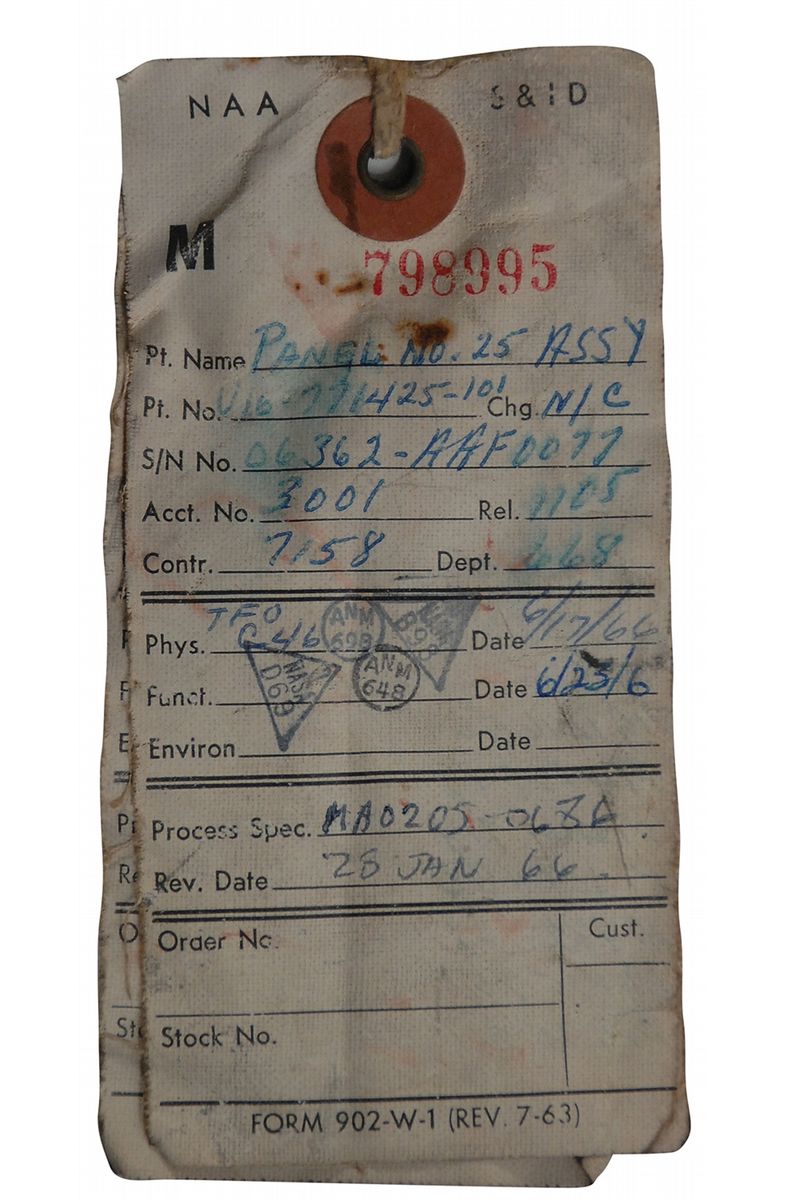 NAA S & I D
M
798995
Pt. Name PANEL NO. 25 ASSY
Pt. No. V16-771425-101 Chg. N/C
S/N No. 06362-AAF0077
Acct. No. 3001 Rel. 1105
Contr. 7158 Dept. 668
TFO
Phys. C46 Date 6/17/66
ANM
ANM
648
NASA
D69
Funct. Date 6/23/6
Environ Date
Process Spec. MA0205-068A
Rev. Date 28 JAN 66
Order No. Cust.
Stock No.
FORM 902-W-1 (REV. 7-63)